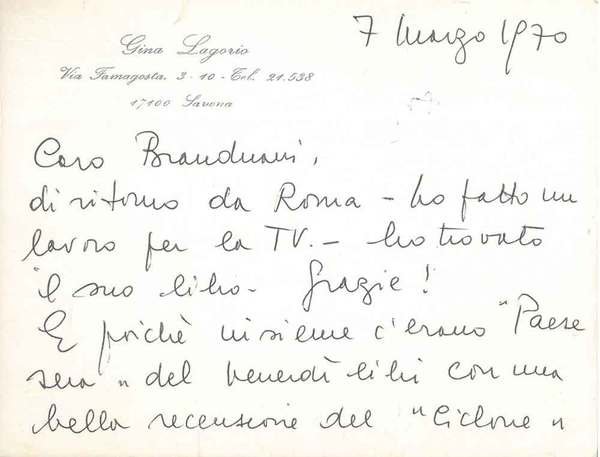 Gina Lagorio
Via Famagosta, 3 - 10 - Tel. 21.538
17100 Savona
7 Marzo 1970
Caro Branduani,
di ritorno da Roma - ho fatto un
lavoro per la TV. - ho trovato
il suo libro - Grazie!
E poichè insieme c'erano "Paese
sera" del venerdì libri con una
bella recensione del "Ciclone"